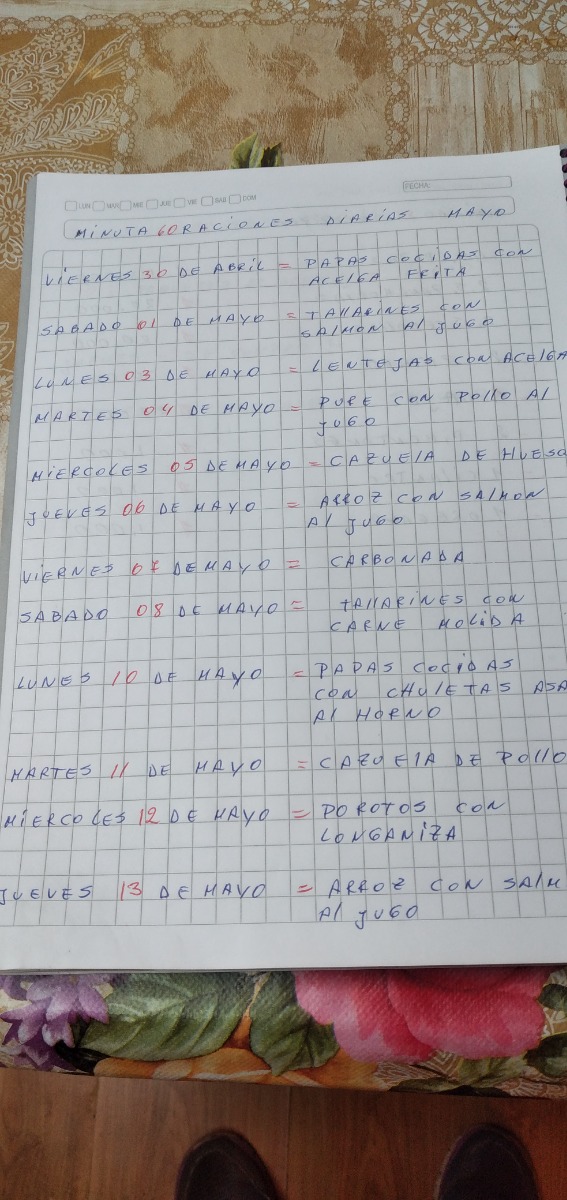 LUN MAR MIE JUE VIE SAB DOM
FECHA:
MINUTA 60 RACIONES DIARIAS MAYO
VIERNES 30 DE ABRIL = PAPAS COCIDAS CON
ACELGA FRITA
SABADO 01 DE MAYO = TALLARINES CON
SALMON Al JUGO
LUNES 03 DE MAYO = LENTEJAS CON ACELGA
MARTES 04 DE MAYO = PURE CON POllO Al
JUGO
MIERCOLES 05 DE MAYO = CAZUElA DE HUESO
JUEVES 06 DE MAYO = ARROZ CON SALMON
Al JUGO
VIERNES 07 DE MAYO = CARBONADA
SABADO 08 DE MAYO = TAllARINES CON
CARNE MOLIDA
LUNES 10 DE MAYO = PAPAS COCIDAS
CON CHULETAS ASA
Al HORNO
MARTES 11 DE MAYO = CAZUElA DE POllO
MIERCOLES 12 DE MAYO = POROTOS CON
LONGANIZA
JUEVES 13 DE MAYO = ARROZ CON SAlM
Al JUGO